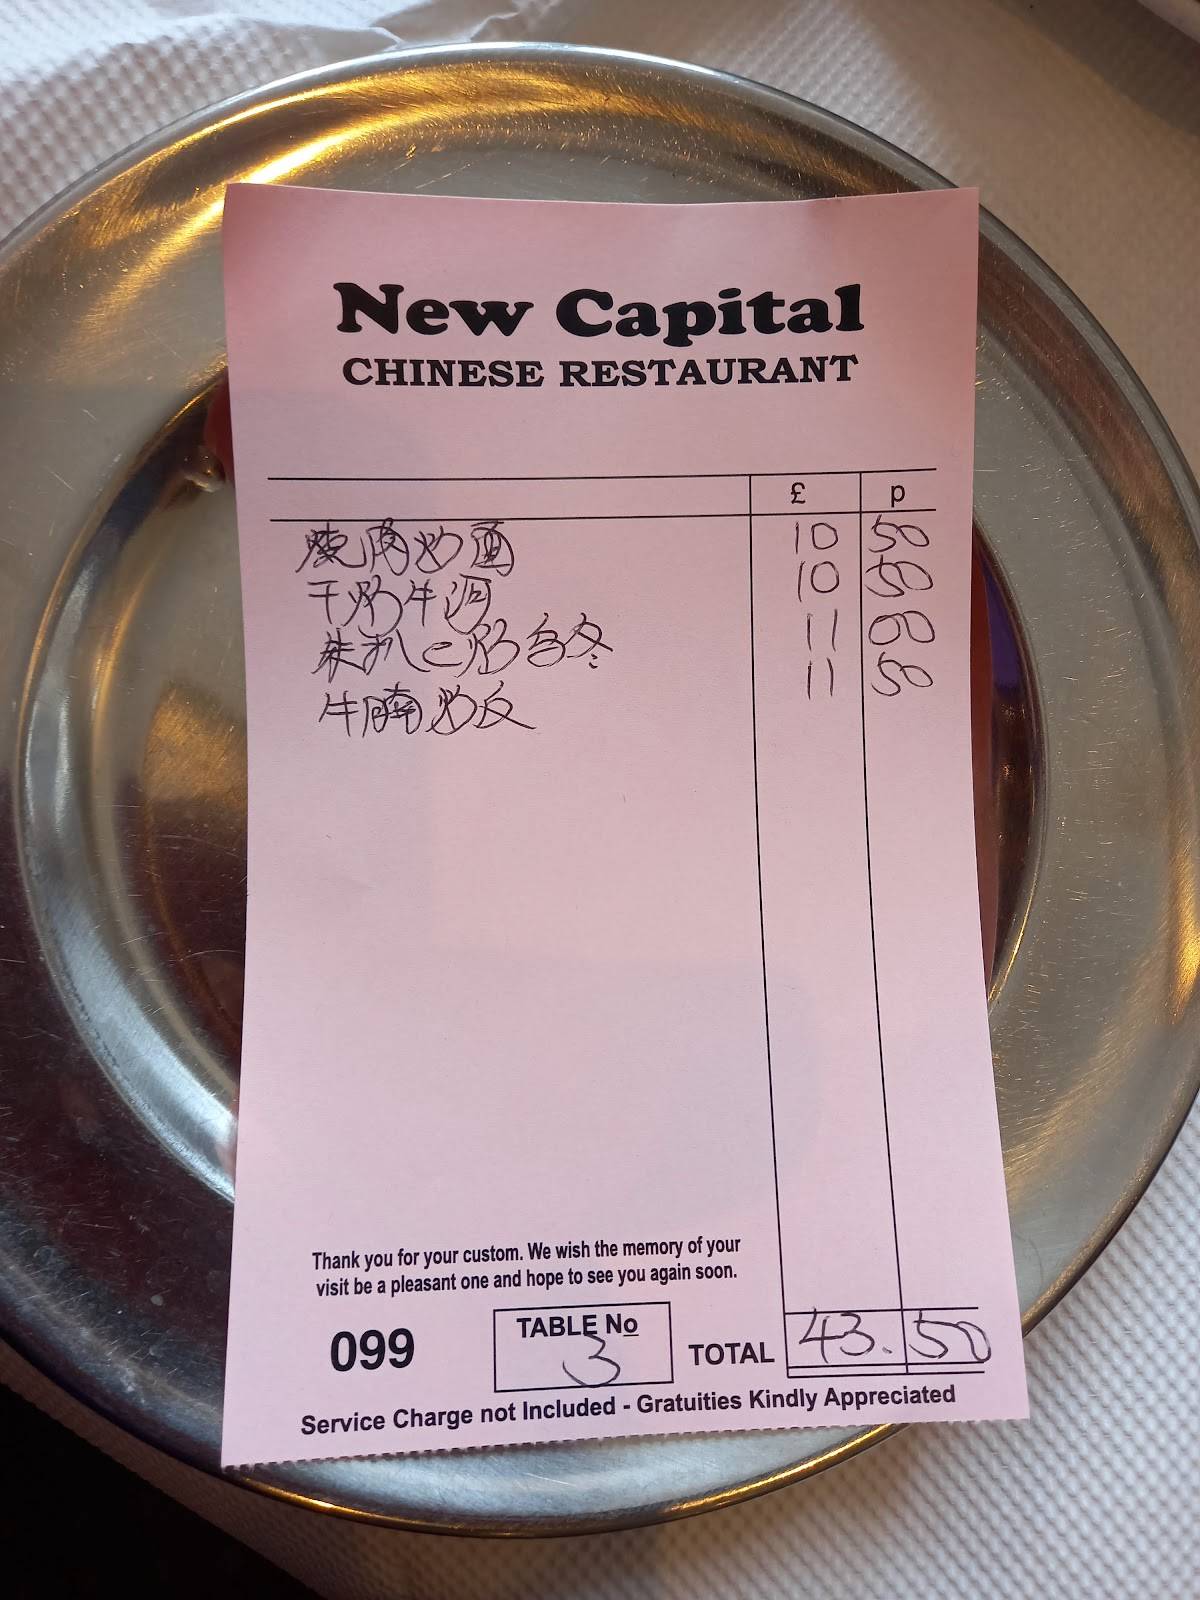 New Capital
CHINESE RESTAURANT
£ p
燒肉炒面 10 50
干炒牛河 10 50
11 00
牛腩炒反 11 50
Thank you for your custom. We wish the memory of your
visit be a pleasant one and hope to see you again soon.
099
TABLE No
3
TOTAL 43.50
Service Charge not Included - Gratuities Kindly Appreciated